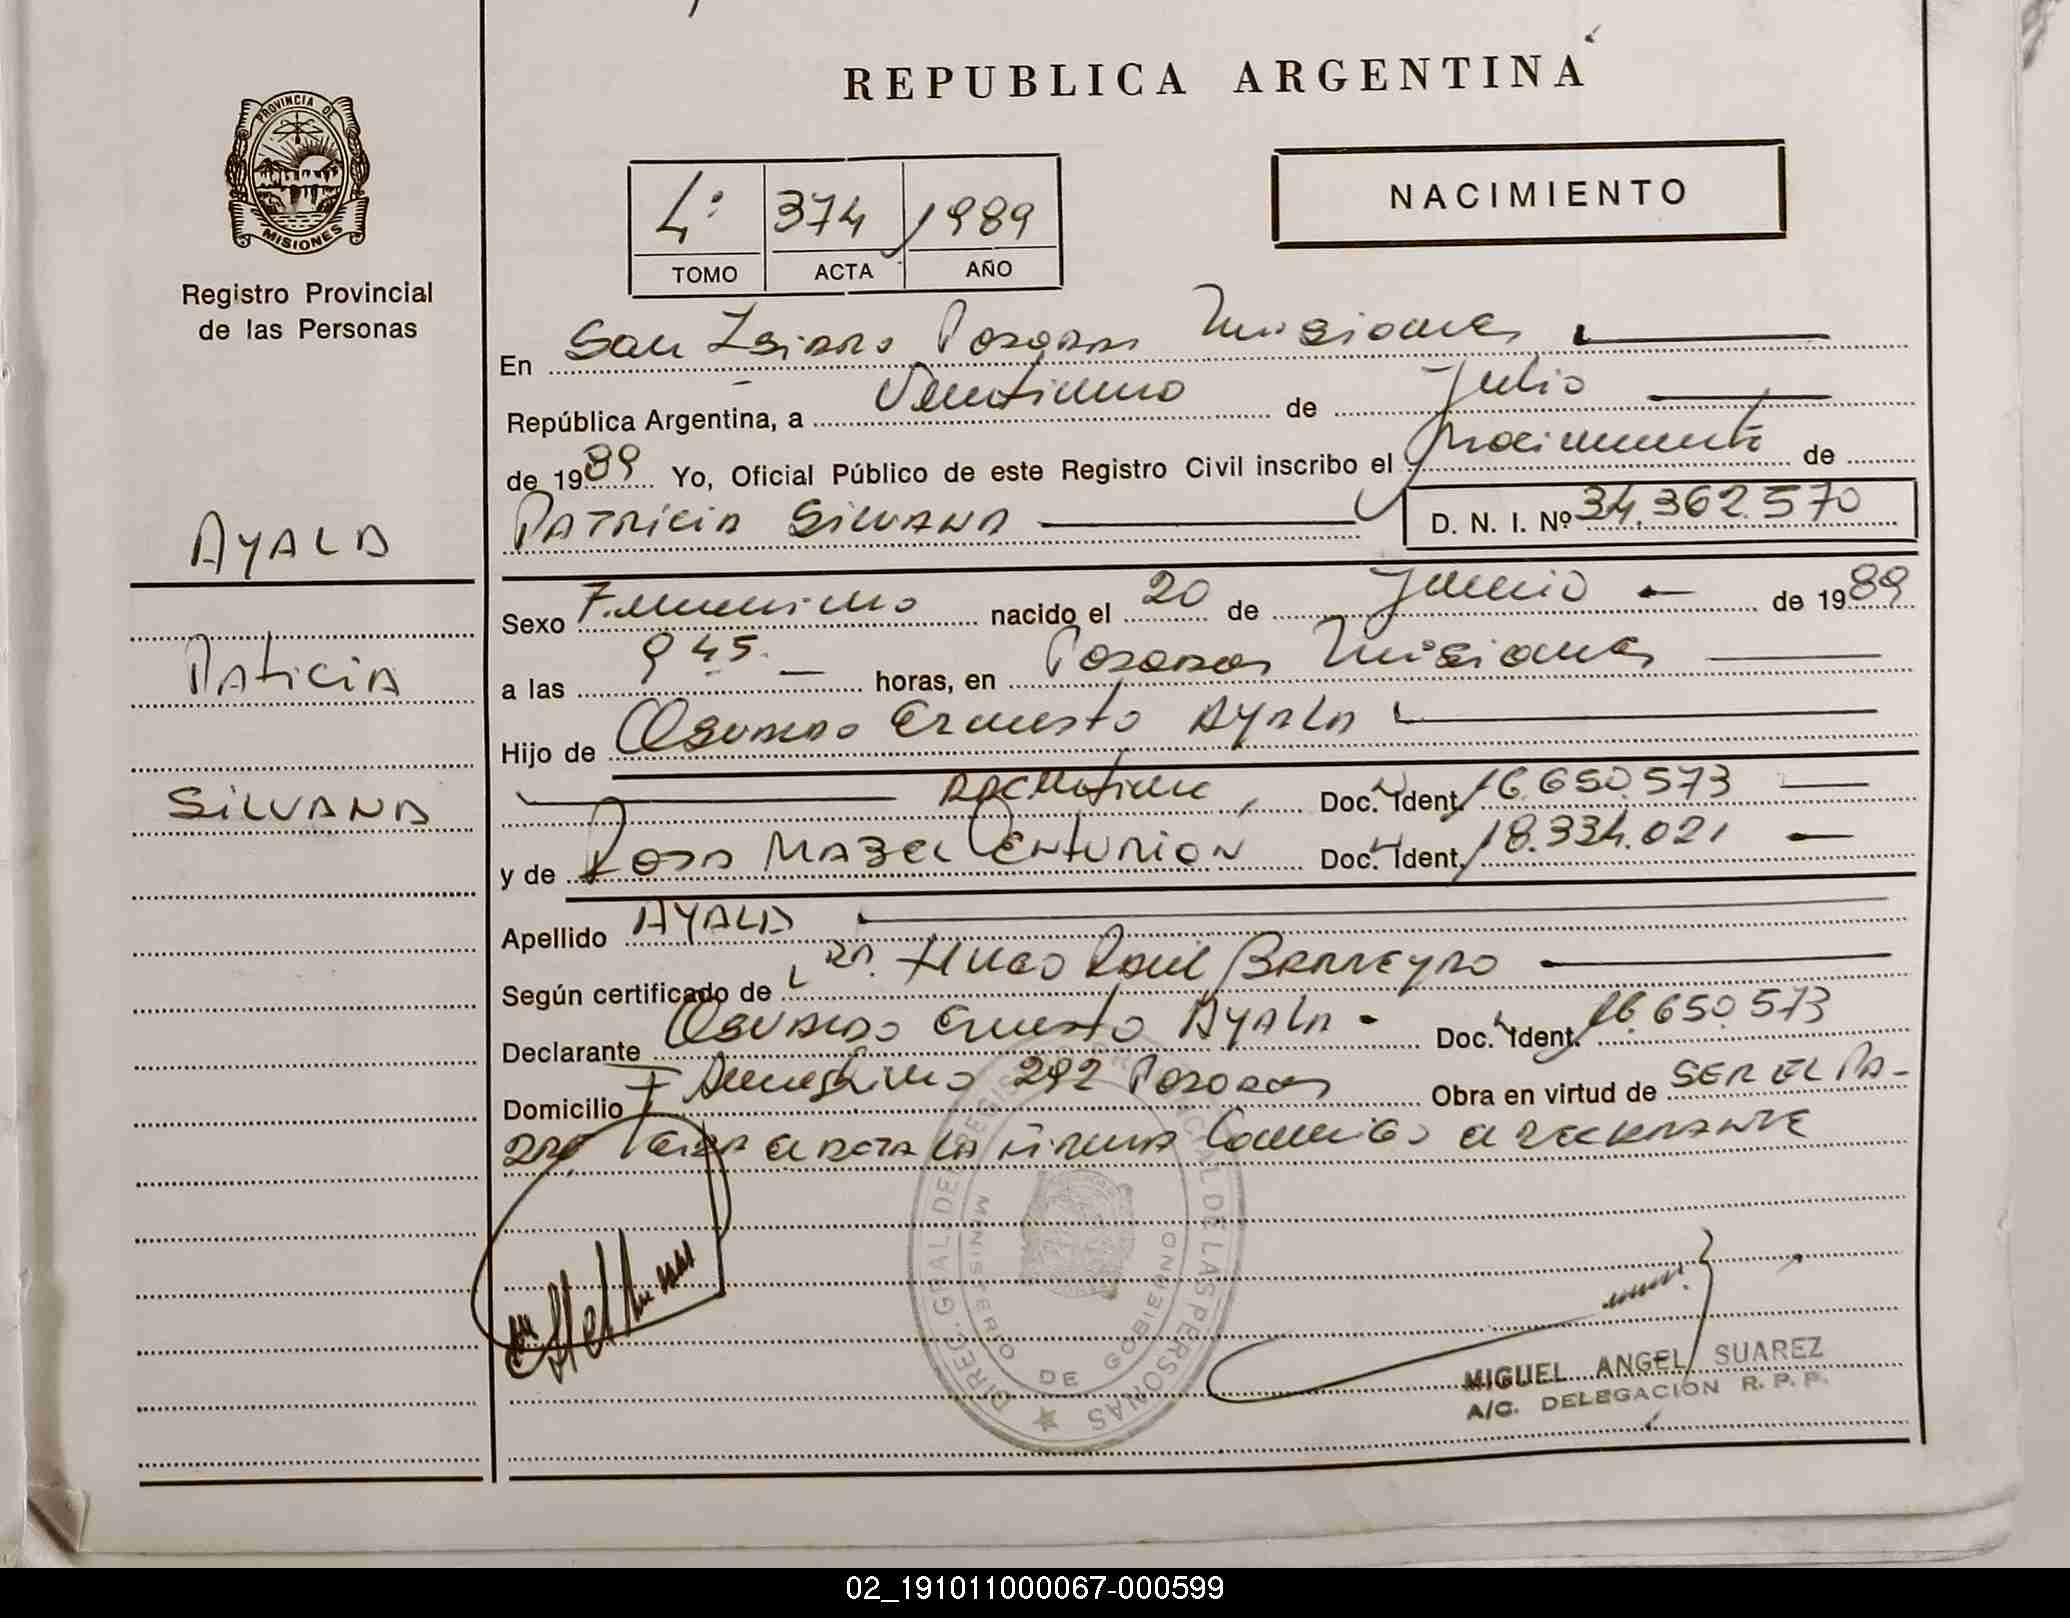 REPUBLICA ARGENTINA
PROVINCIA DE MISIONES
Registro Provincial
de las Personas
4º 374 1989
TOMO ACTA AÑO
NACIMIENTO
En San Isidro Posadas Misiones
República Argentina, a Ventiuno de Julio
de 1989 Yo, Oficial Público de este Registro Civil inscribo el nacimiento de
PATRICIA SILVANA D. N. I. Nº 34.362.570
AYALA
PATICIA
SILVANA
Sexo Femenino nacido el 20 de Junio de 1989
a las 9 45. horas, en Posadas Misiones
Hijo de Osvaldo Ernesto Ayala
argentino, Doc. Ident. 16.650.573
y de Rosa Mabel Centurion Doc. Ident. 18.334.021
Apellido AYALA
Según certificado de Dr. Hugo Raul Barreyro
Declarante Osvaldo Ernesto Ayala Doc. Ident. 16.650.573
Domicilio 292 Posadas Obra en virtud de SER EL PA-
DRE Leida el acta la firma conmigo el declarante
DIREC. GRAL. DEL REGISTRO PROVINCIAL DE LAS PERSONAS
MINISTERIO DE GOBIERNO
MIGUEL ANGEL SUAREZ
A/C. DELEGACION R. P. P.
02_191011000067-000599